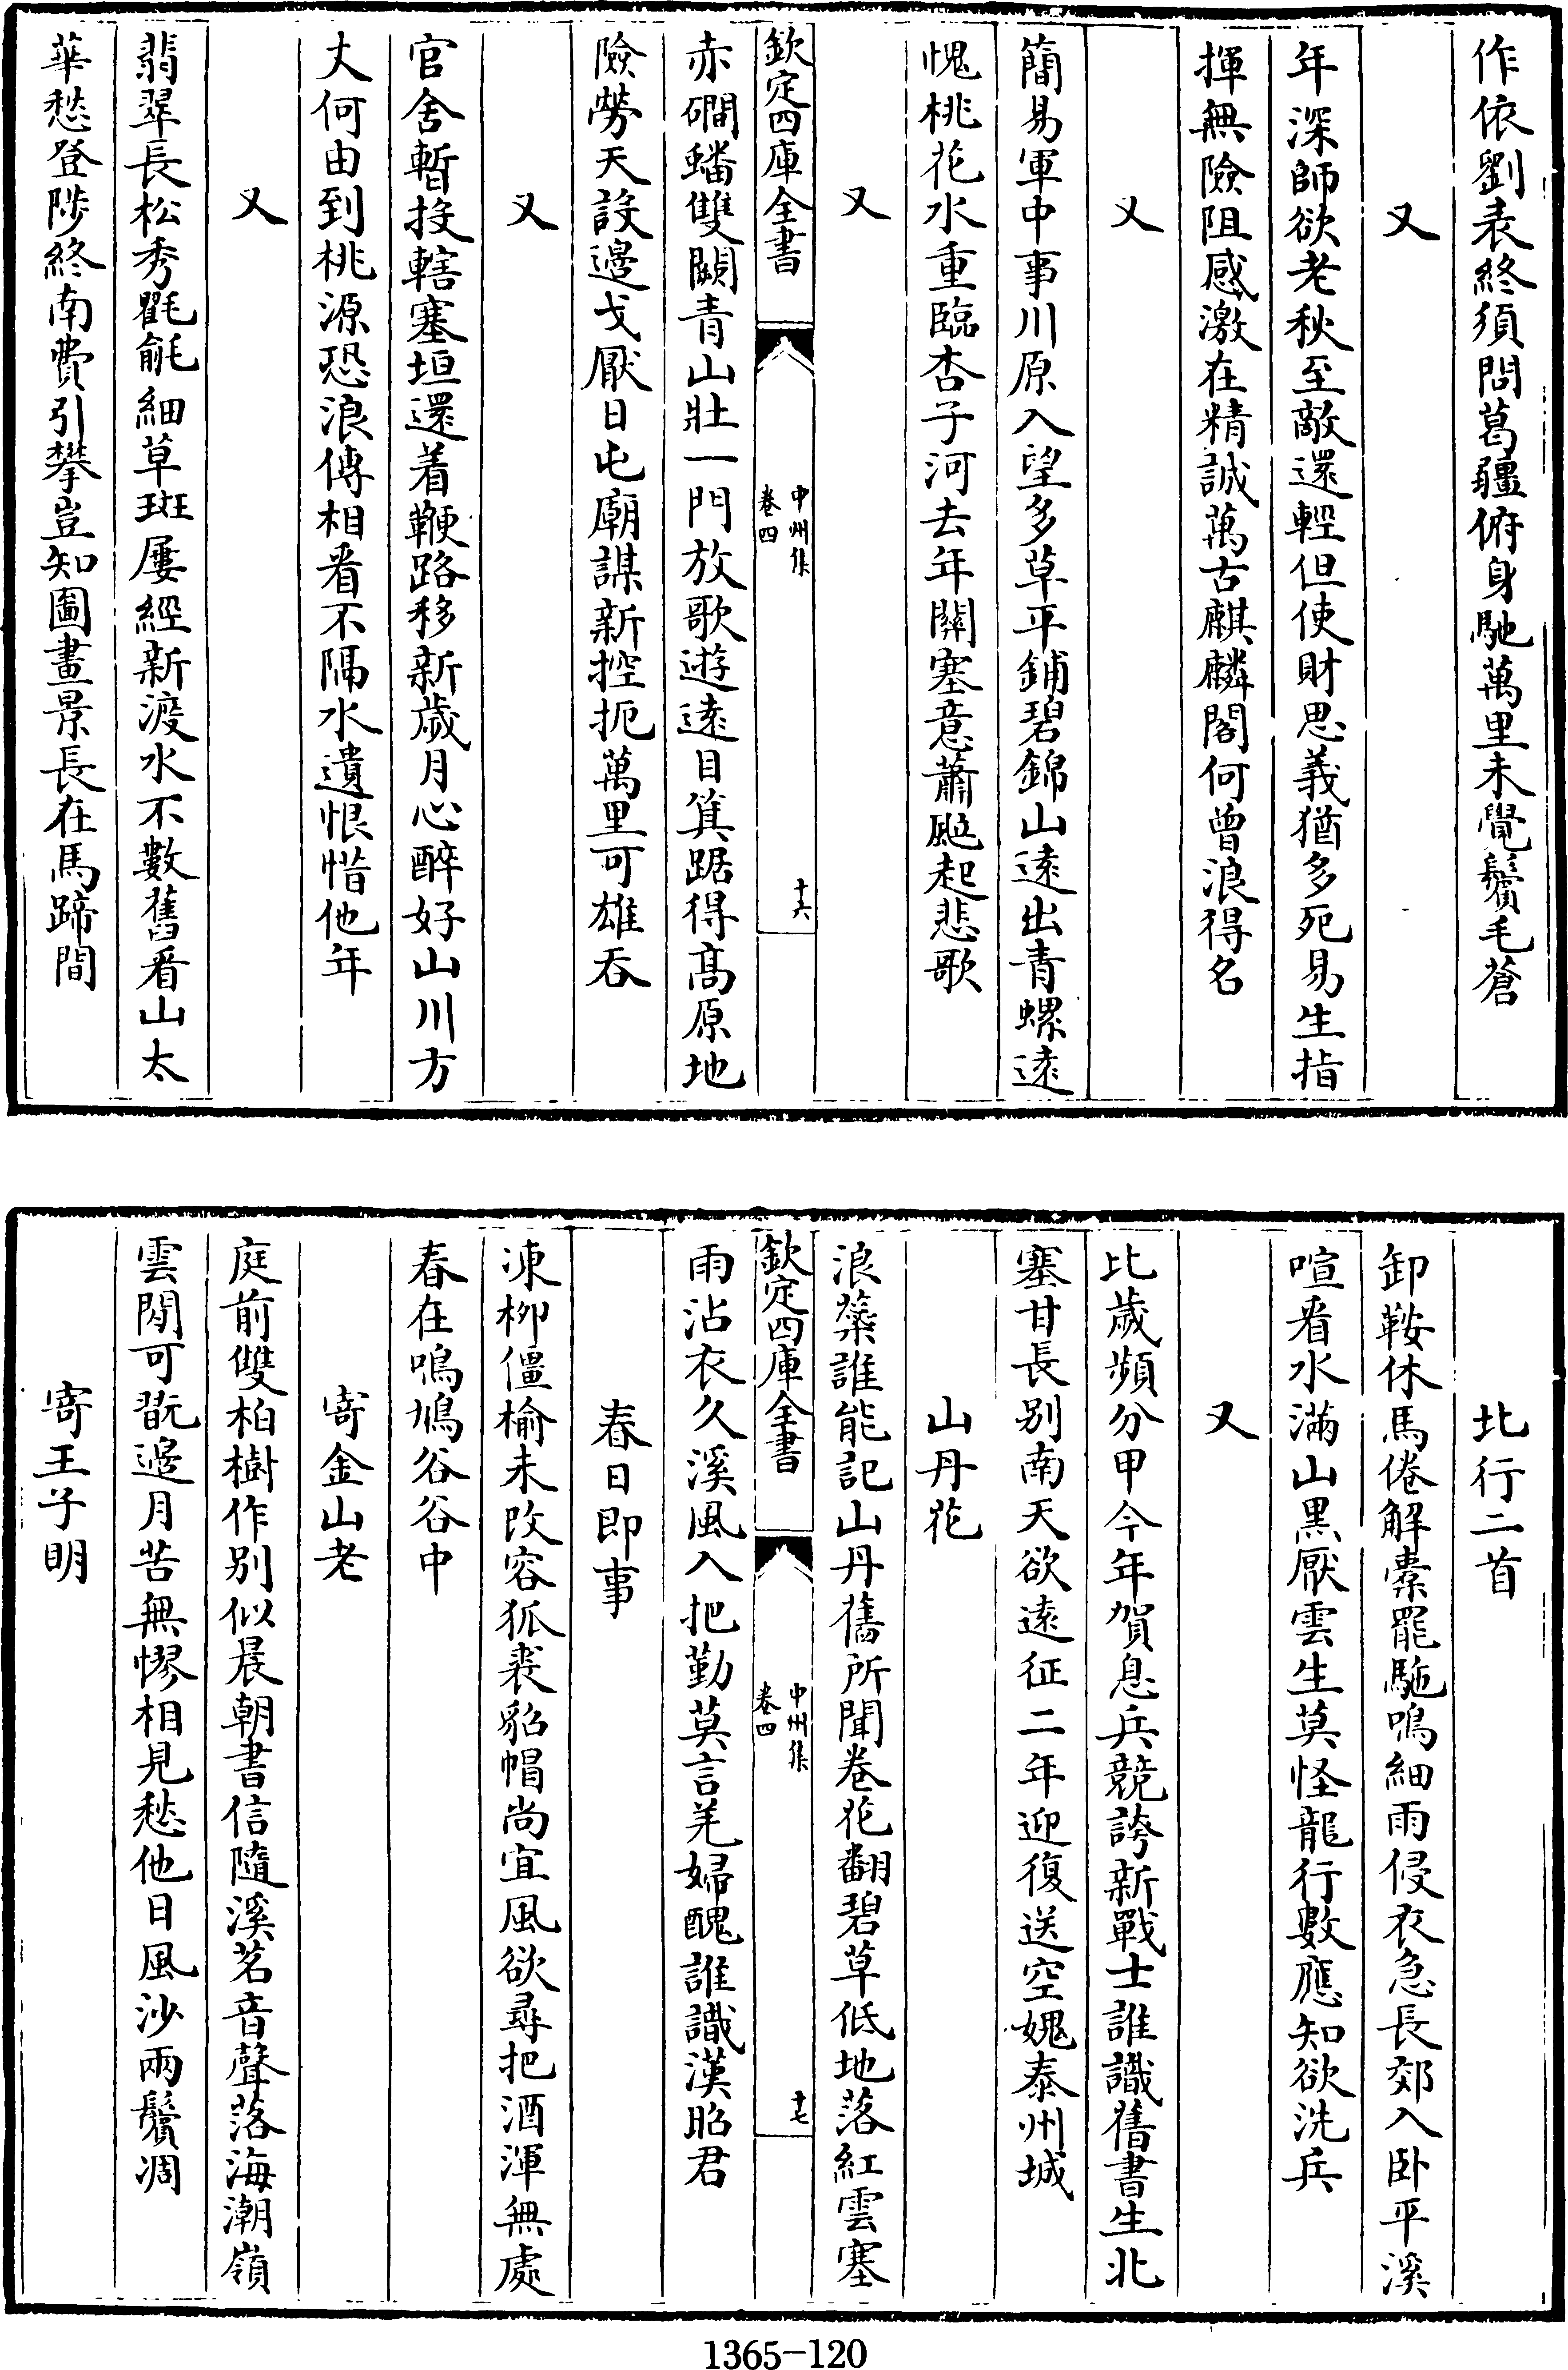 作依劉表終須問葛疆俯身馳萬里未覺鬢毛蒼
又
年深師欲老秋至敵還輕但使財思義猶多死易生指
揮無險阻感激在精誠萬古麒麟閣何曾浪得名
又
簡易軍中事川原入望多草平鋪碧錦山遠出青螺遠
愧桃花水重臨杏子河去年關塞意蕭颯起悲歌
又
欽定四庫全書
中州集
卷四
十六
赤磵蟠雙闕青山壯一門放歌遊遠目箕踞得髙原地
險勞天設邊戈厭日屯廟謀新控扼萬里可雄吞
又
官舍暫投轄塞垣還着鞭路移新歲月心醉好山川方
丈何由到桃源恐浪傳相看不隔水遺恨惜他年
又
翡翠長松秀氍毹細草斑屢經新渡水不數舊看山太
華愁登陟終南費引攀豈知圖畫景長在馬蹄間
北行二首
卸鞍休馬倦解橐罷駞鳴細雨侵衣急長郊入卧平溪
喧看水滿山黒厭雲生莫怪龍行數應知欲洗兵
又
比歲頻分甲今年賀息兵競誇新戰士誰識舊書生北
塞甘長别南天欲遠征二年迎復送空媿泰州城
山丹花
浪蘂誰能記山丹舊所聞卷花翻碧草低地落紅雲塞
欽定四庫全書
中州集
卷四
十七
雨沾衣久溪風入把勤莫言羌婦醜誰識漢昭君
春日即事
凍栁僵榆未改容狐裘貂帽尚宜風欲尋把酒渾無處
春在鳴鳩谷谷中
寄金山老
庭前雙柏樹作别似晨朝書信隨溪茗音聲落海潮嶺
雲閒可翫邊月苦無憀相見愁他日風沙兩鬢凋
寄王子明
1365-120